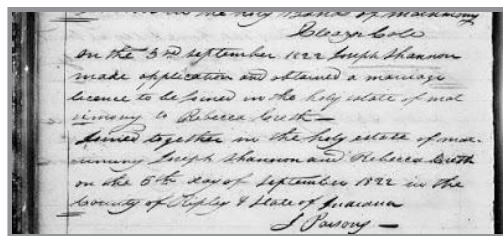 in the holy Bands of matrimony
Eleazr Cole
on the 3rd September 1822 Joseph Shannon
make application and obtained a marriage
licence to be Joined in the holy estate of mat
rimony to Rebecca
Joined together in the holy estate of mat-
rimony Joseph Shannon and Rebecca
on the 5th day of September 1822 in the
County of Ripley & State of Indiana
J Parsons